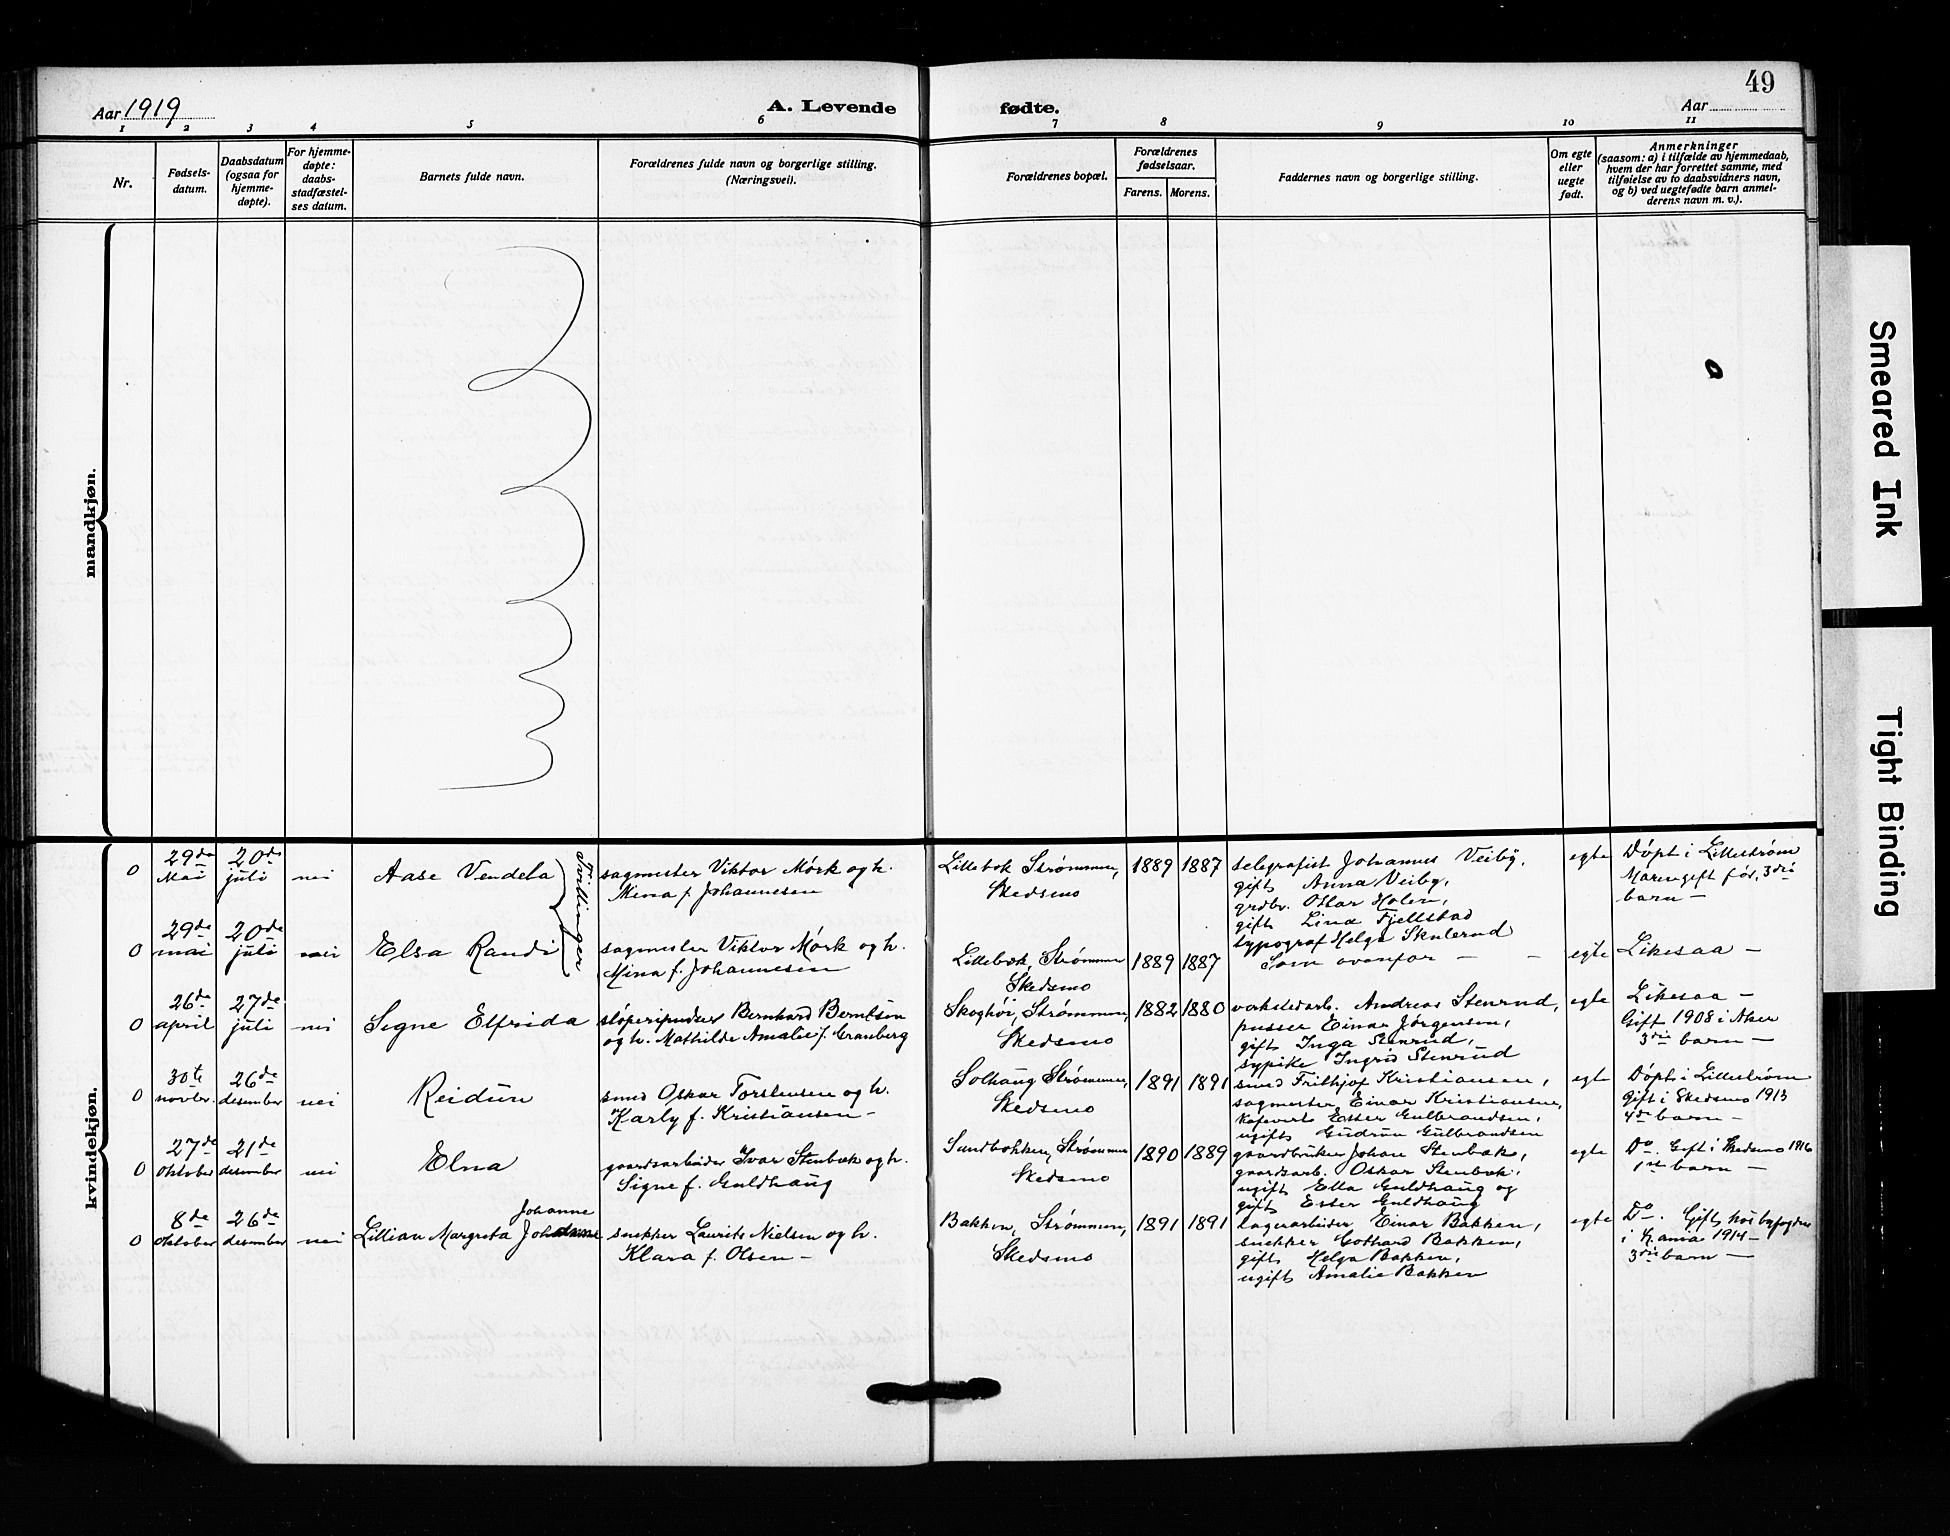 49
Aar 1919
A. Levende fødte.
Aar
1 2 3 4 5 6 7 8 9 10 11
Nr.
Fødsels-
datum.
Daabsdatum
(ogsaa for
hjemme-
døpte).
For hjemme-
døpte:
daabs-
stadfæstel-
ses datum.
Barnets fulde navn.
Forældrenes fulde navn og borgerlige stilling.
(Næringsvei).
Forældrenes bopæl.
Forældrenes
fødselsaar.
Farens. Morens.
Faddernes navn og borgerlige stilling.
Om egte
eller
uegte
født.
Anmerkninger
(saasom: a) i tilfælde av hjemmedaab,
hvem der har forrettet samme, med
tilføielse av to daabsvidners navn,
og b) ved uegtefødte barn anmel-
derens navn m. v.).
mandkjøn.
kvindekjøn.
0
29de
Mai
20de
juli
nei
Aase Vendela
Tvillinger
sagmester Viktor Mørk og h.
Mina f. Johannesen
Lillebæk Strømmen,
Skedsmo
1889 1887
telegrafist Johannes Veiby,
gift Anna Veiby,
grdbr. Ottar Holen,
gift Lina Fjellstad
typograf Helge Skulerud
egte
Døpt i Lillestrøm
barn —
0
29de
mai
20de
juli
nei
Elsa Randi
sagmester Viktor Mørk og h.
Mina f. Johannesen
Lillebæk, Strømmen
Skedsmo
1889 1887
Som ovenfor — —
egte
Likesaa —
0
26de
april
27de
juli
nei
Signe Elfrida
Bernhard Berntsen
og h. Mathilde Amalie f. Granberg
Skoghøi, Strømmen,
Skedsmo
1882 1880
verkstedarb. Andreas Stenrud,
pusser Einar Jørgensen,
gift Inga Stenrud,
sypike Ingrid Stenrud
egte
Likesaa —
Gift 1908 i Aker
3die barn —
0
30te
novbr.
26de
desember
nei
Reidun
smed Oskar Torstensen og h.
Karly f. Kristiansen —
Solhaug Strømmen,
Skedsmo
1891 1891
smed Frithjof Kristiansen,
sagmester Einar Kristiansen,
Ester Gulbrandsen,
ugift Gudrun Gulbrandsen
egte
Døpt i Lillestrøm
Gift i Skedsmo 1913
4de barn —
0
27de
oktober
21de
desember
nei
Elna
gaardsarbeider Ivar Stenbæk og h.
Signe f. Guldhaug
Sundbakken, Strømmen
Skedsmo
1890 1889
gaardbruker Johan Stenbæk,
gaardsarb. Oskar Stenbæk,
ugift Ella Guldhaug og
gift Ester Guldhaug
egte
Do. Gift i Skedsmo 1916
1ste barn —
0
8de
oktober
26de
desember
nei
Johanne
Lillian Margreta
snekker Laurits Nielsen og h.
Klara f. Olsen —
Bakken, Strømmen,
Skedsmo
1891 1891
lagerarbeider Einar Bakken,
snekker Gothard Bakken,
gift Helga Bakken,
ugift Amalie Bakken
egte
Do. Gift hos byfogden
i Kr.ania 1914 —
3die barn —
Smeared Ink
Tight Binding